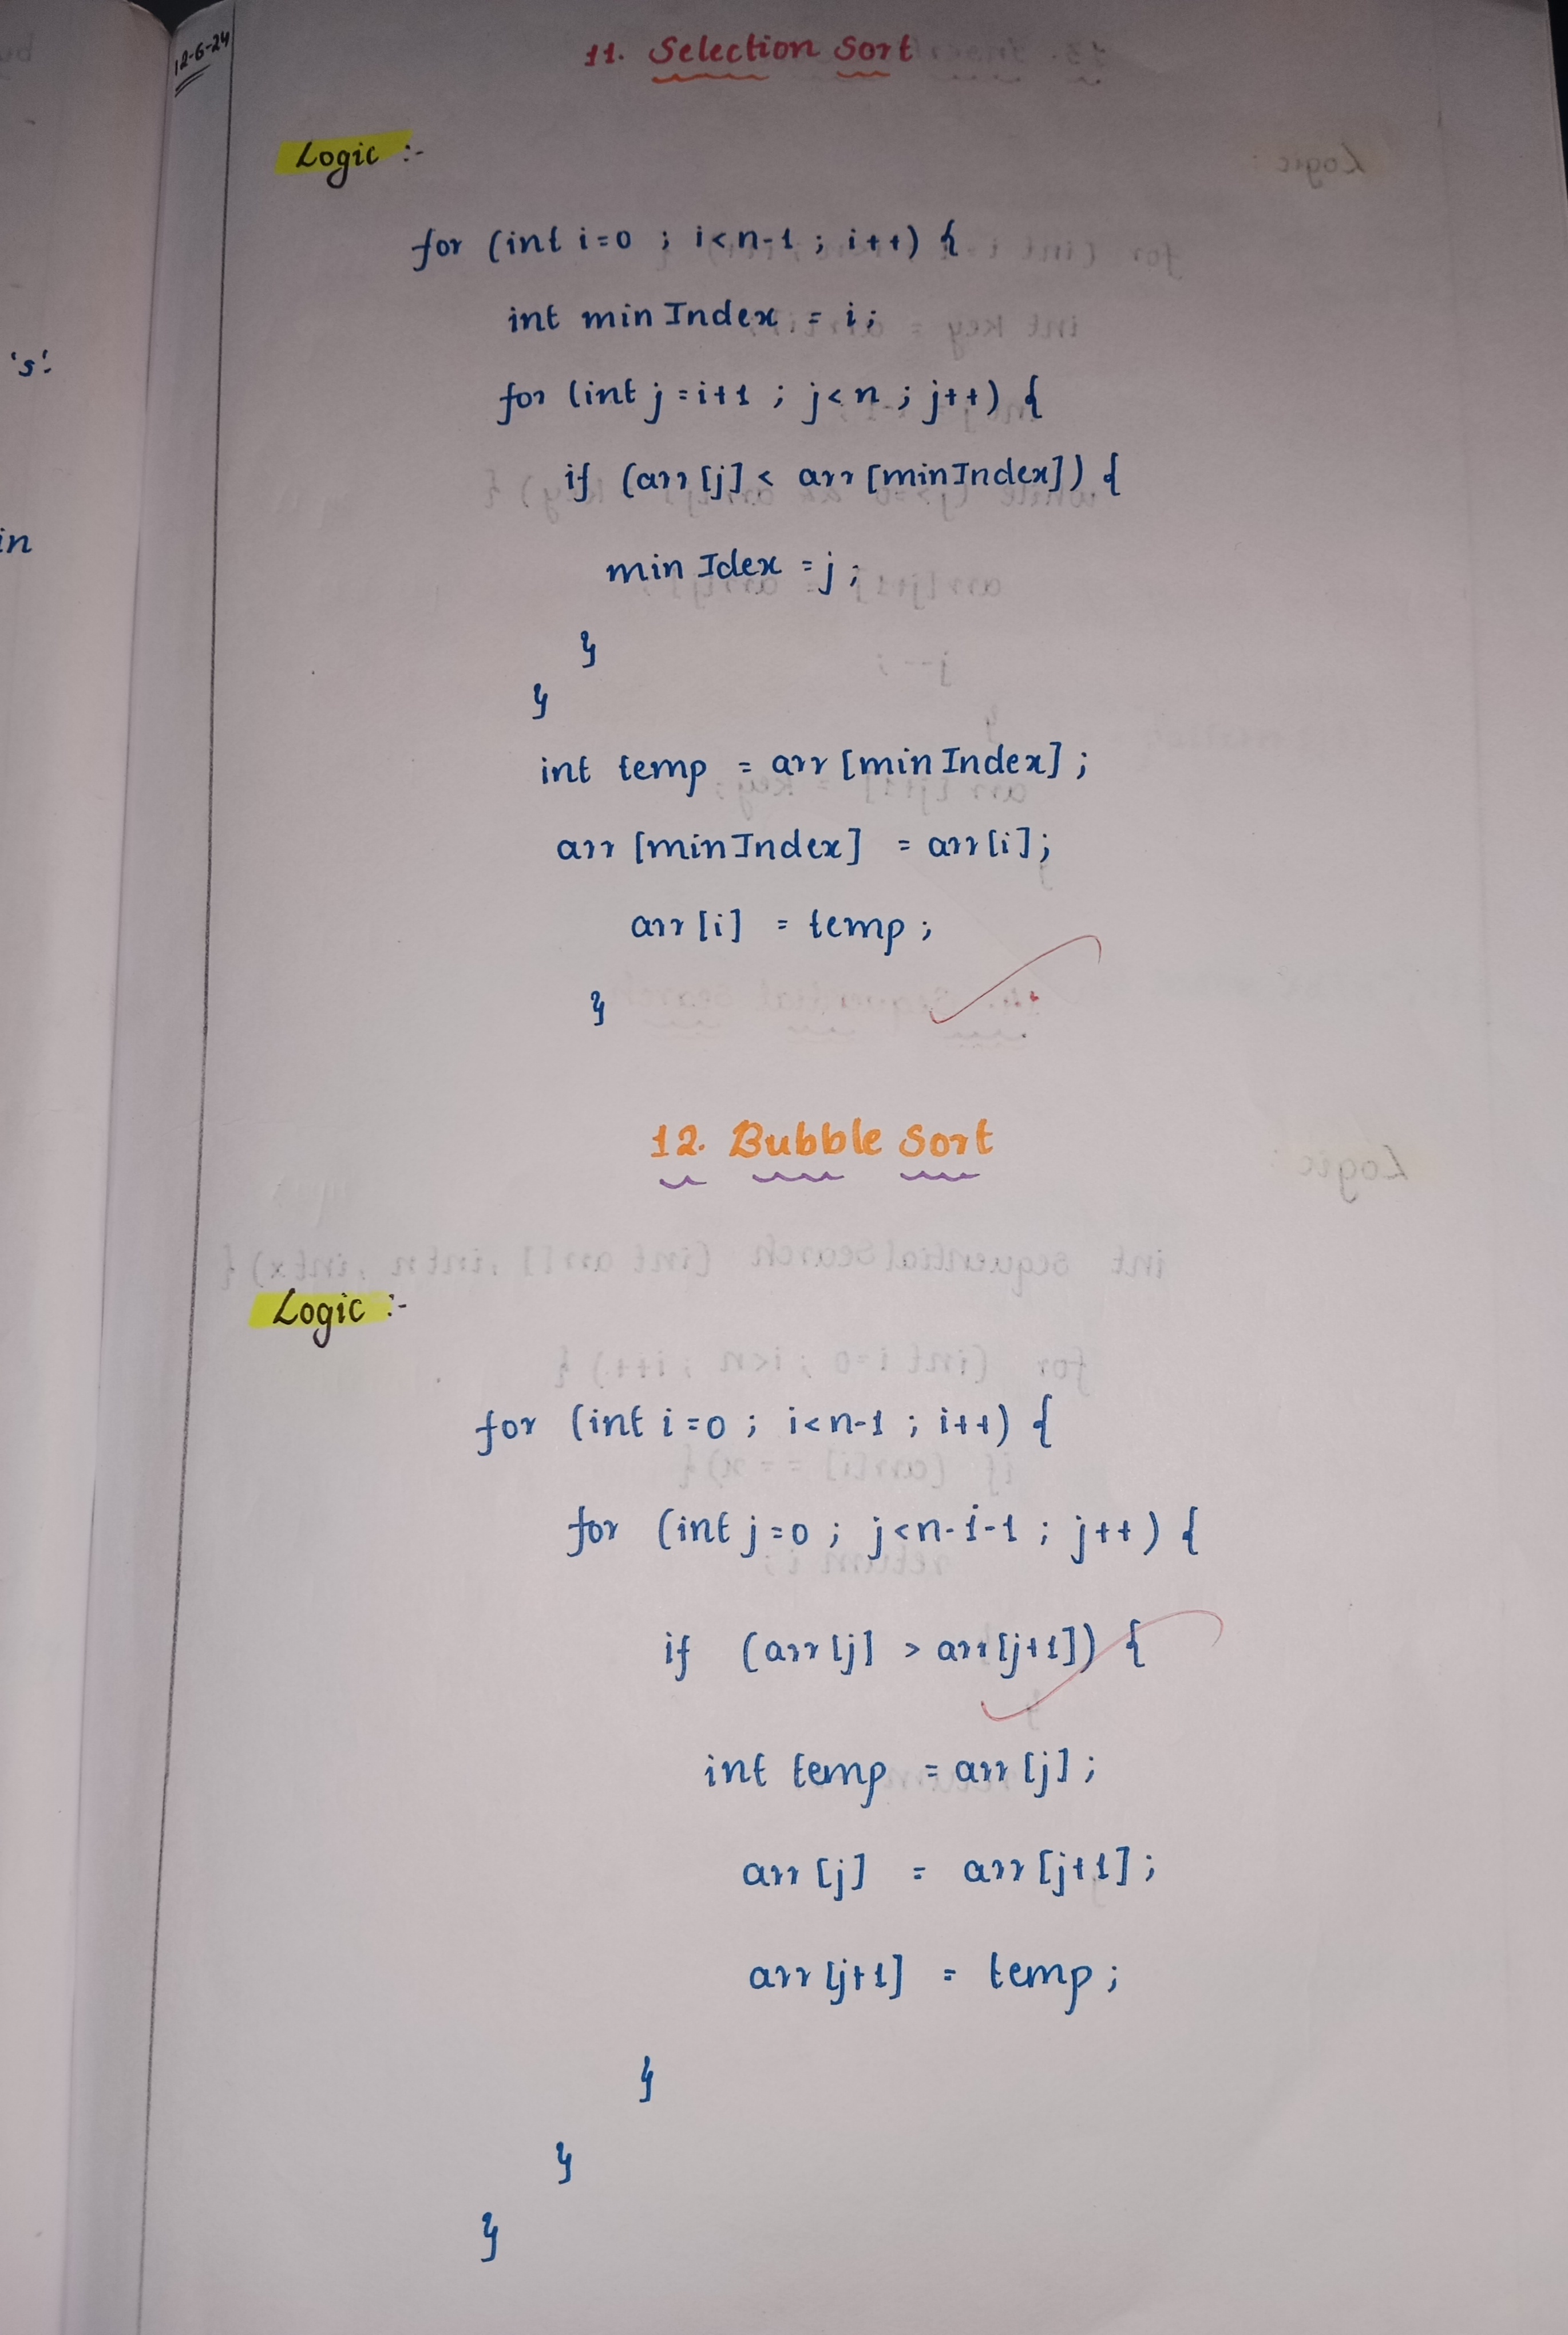 12-6-24
11. Selection Sort
Logic :-
for (int i=0 ; i<n-1 ; i++) {
int min Index = i;
for (int j=i+1 ; j<n ; j++) {
if (arr [j] < arr [minIndex]) {
min Idex =j;
}
}
int temp = arr [min Index] ;
arr [minIndex] = arr[i];
arr [i] = temp ;
}
12. Bubble Sort
Logic :-
for (int i=0 ; i<n-1 ; i++) {
for (int j=0 ; j<n-i-1 ; j++) {
if (arr [j] > arr[j+1]) {
int temp = arr [j] ;
arr [j] = arr [j+1] ;
arr [j+1] = temp ;
}
}
}
's'.
in